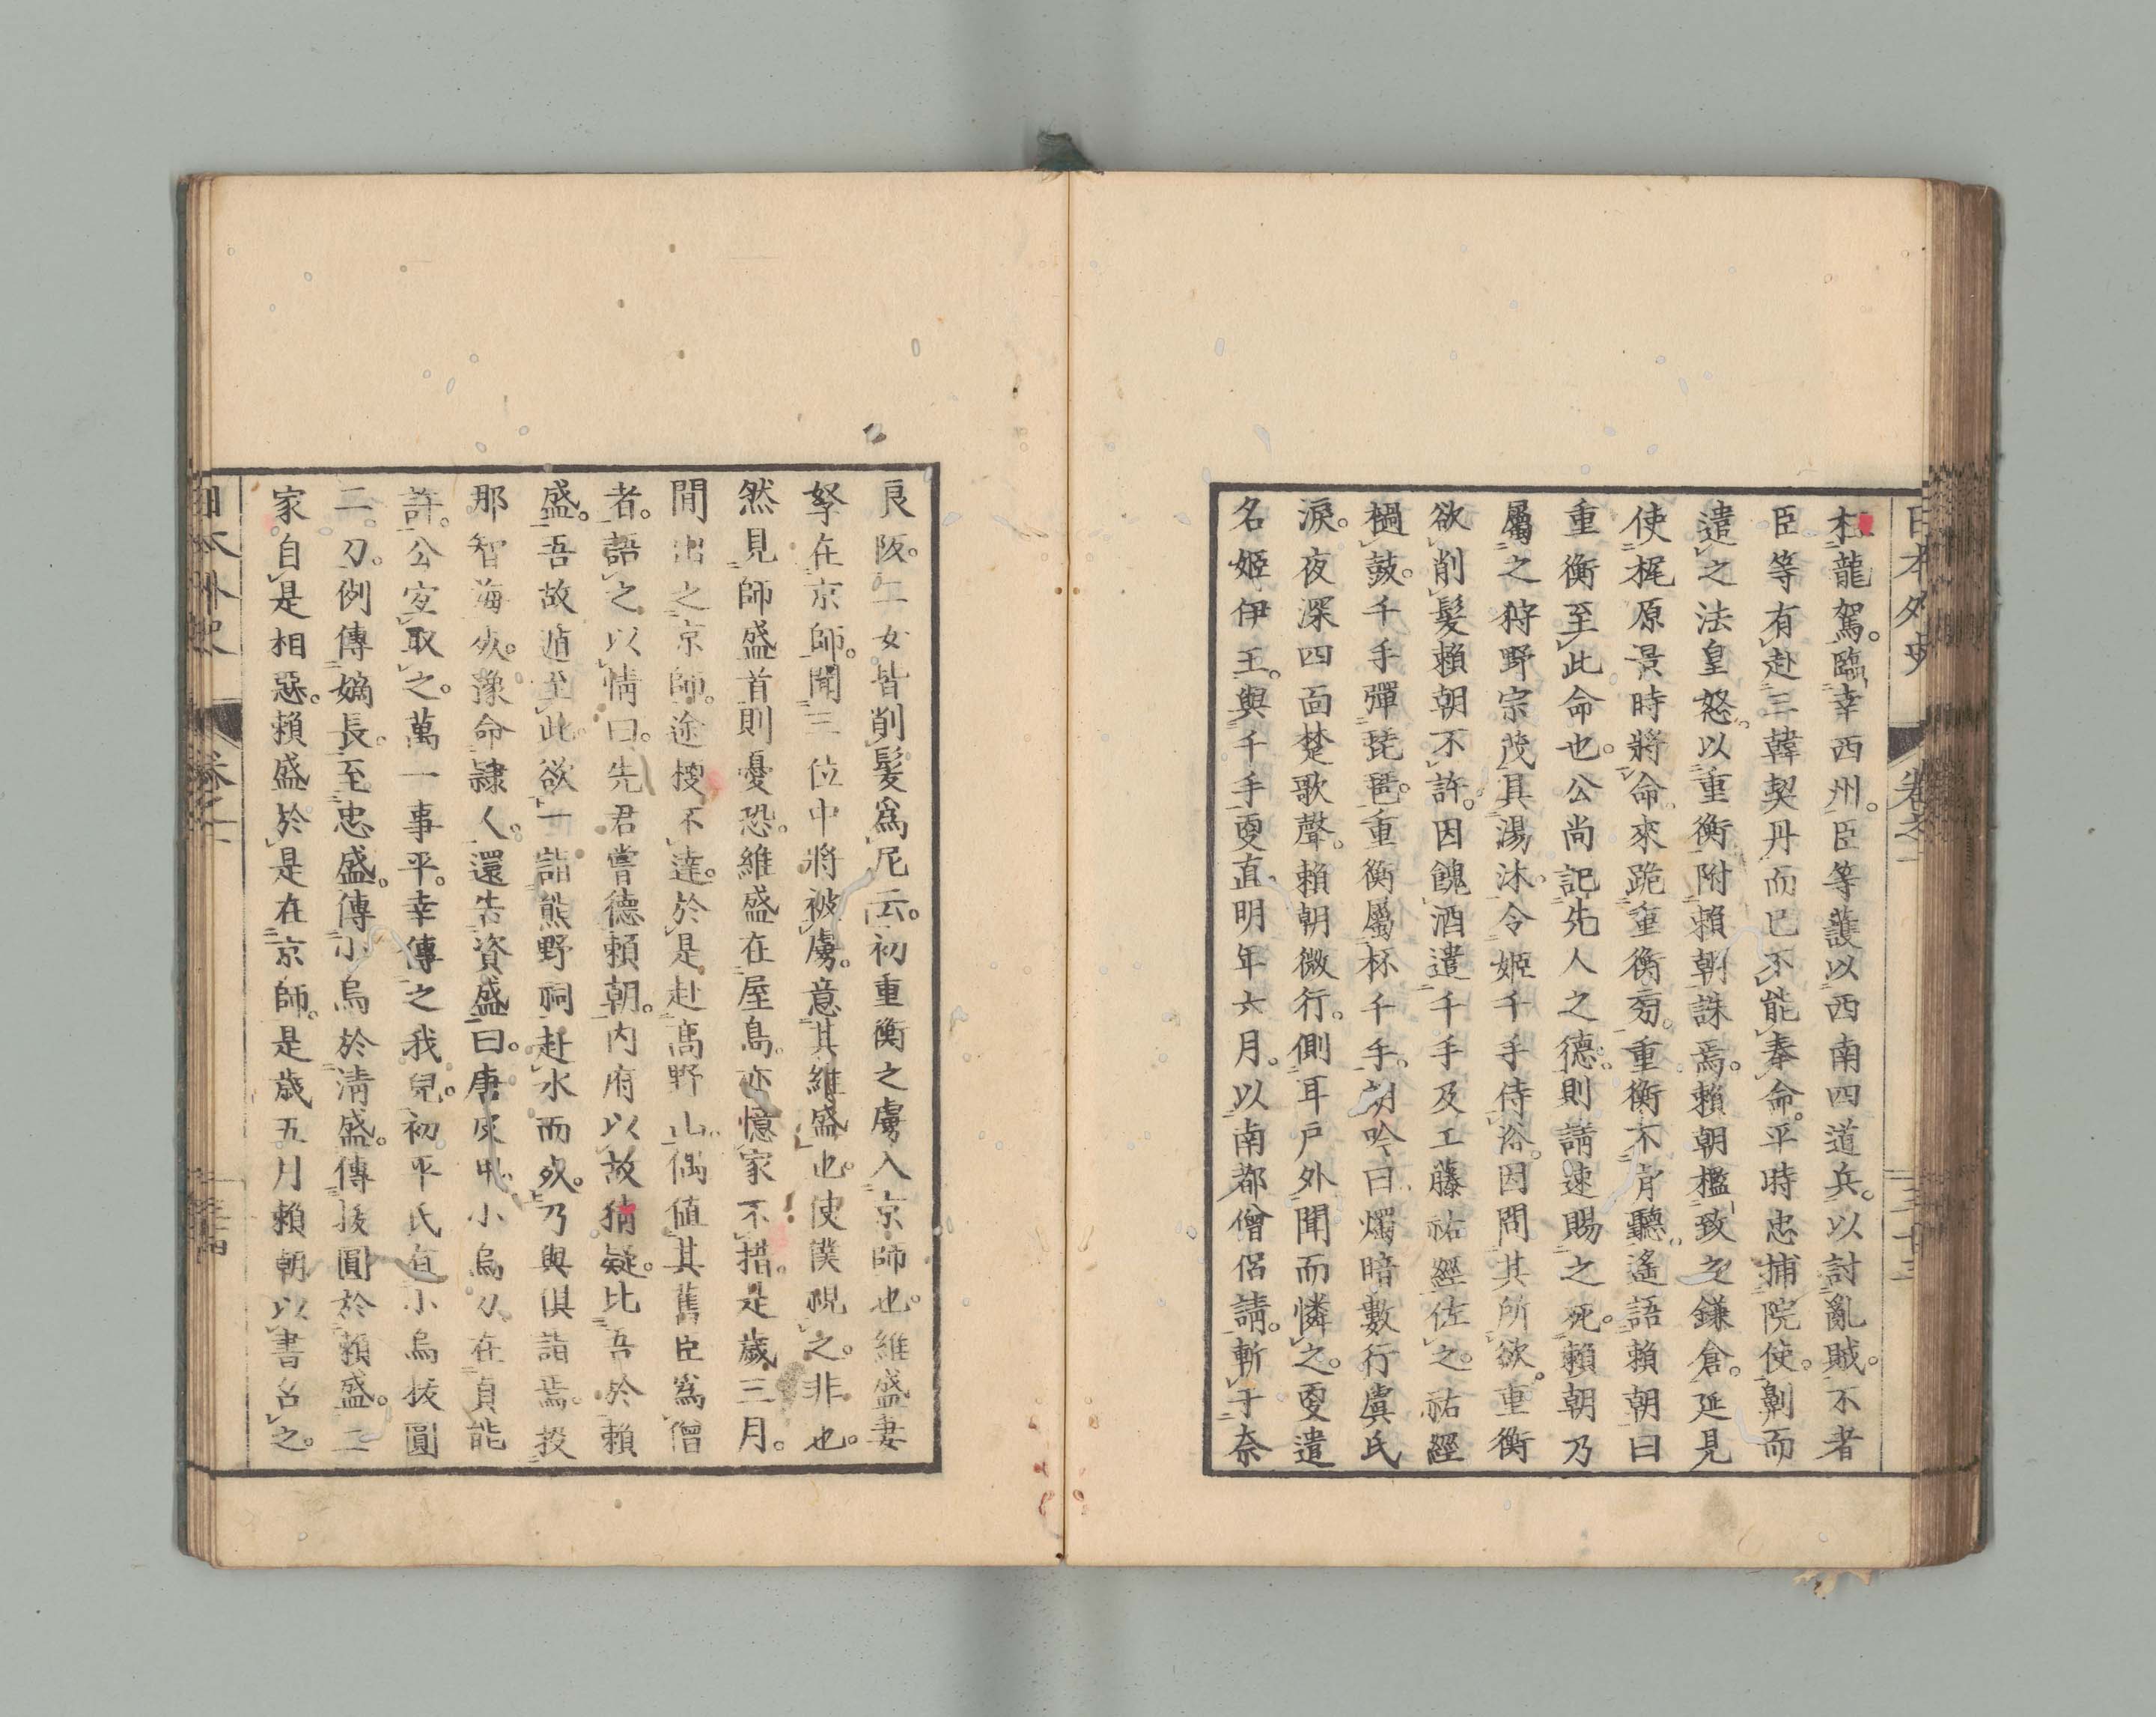 日本外史 卷之一 三十三
枉龍駕。臨幸西州。臣等護以西南四道兵。以討亂賊。不者
臣等有赴三韓契丹而已。不能奉命。平時忠捕院使。劓而
遣之。法皇怒。以重衡附賴朝誅焉。賴朝檻致之鎌倉。延見
使梶原景時將命。來跪重衡旁。重衡不肯聽。遙語賴朝曰
重衡至此命也。公尚記先人之德。則請速賜之死。賴朝乃
屬之狩野宗茂具湯沐。令姬千手侍浴。因問其所欲。重衡
欲削髮賴朝不許。因餽酒遣千手及工藤祐經佐之。祐經
撾鼓。千手彈琵琶。重衡屬杯千手。朗吟曰燭暗數行虞氏
淚。夜深四面楚歌聲。賴朝微行。側耳戶外聞而憐之。更遣
名姬伊王。與千手更直。明年六月。以南都僧侶請。斬于奈
良阪。二女皆削髮爲尼云。初重衡之虜入京師也。維盛妻
孥在京師。聞三位中將被虜。意其維盛也。使僕視之。非也。
然見師盛首則憂恐。維盛在屋島。亦憶家不措。是歲三月。
間出之京師。途梗不達。於是赴高野山。偶値其舊臣爲僧
者。語之以情曰。先君嘗德賴朝。內府以故猜疑。比吾於賴
盛。吾故遁至此。欲一詣熊野祠赴水而死。乃與俱詣焉。投
那智海死。豫命隷人。還告資盛曰。唐皮甲小烏刀在貞能
許。公宜取之。萬一事平。幸傳之我兒。初平氏有小烏拔圓
二刀。例傳嫡長。至忠盛。傳小烏於淸盛。傳拔圓於賴盛。二
家自是相惡。賴盛於是在京師。是歲五月賴朝以書召之。
日本外史 卷之一